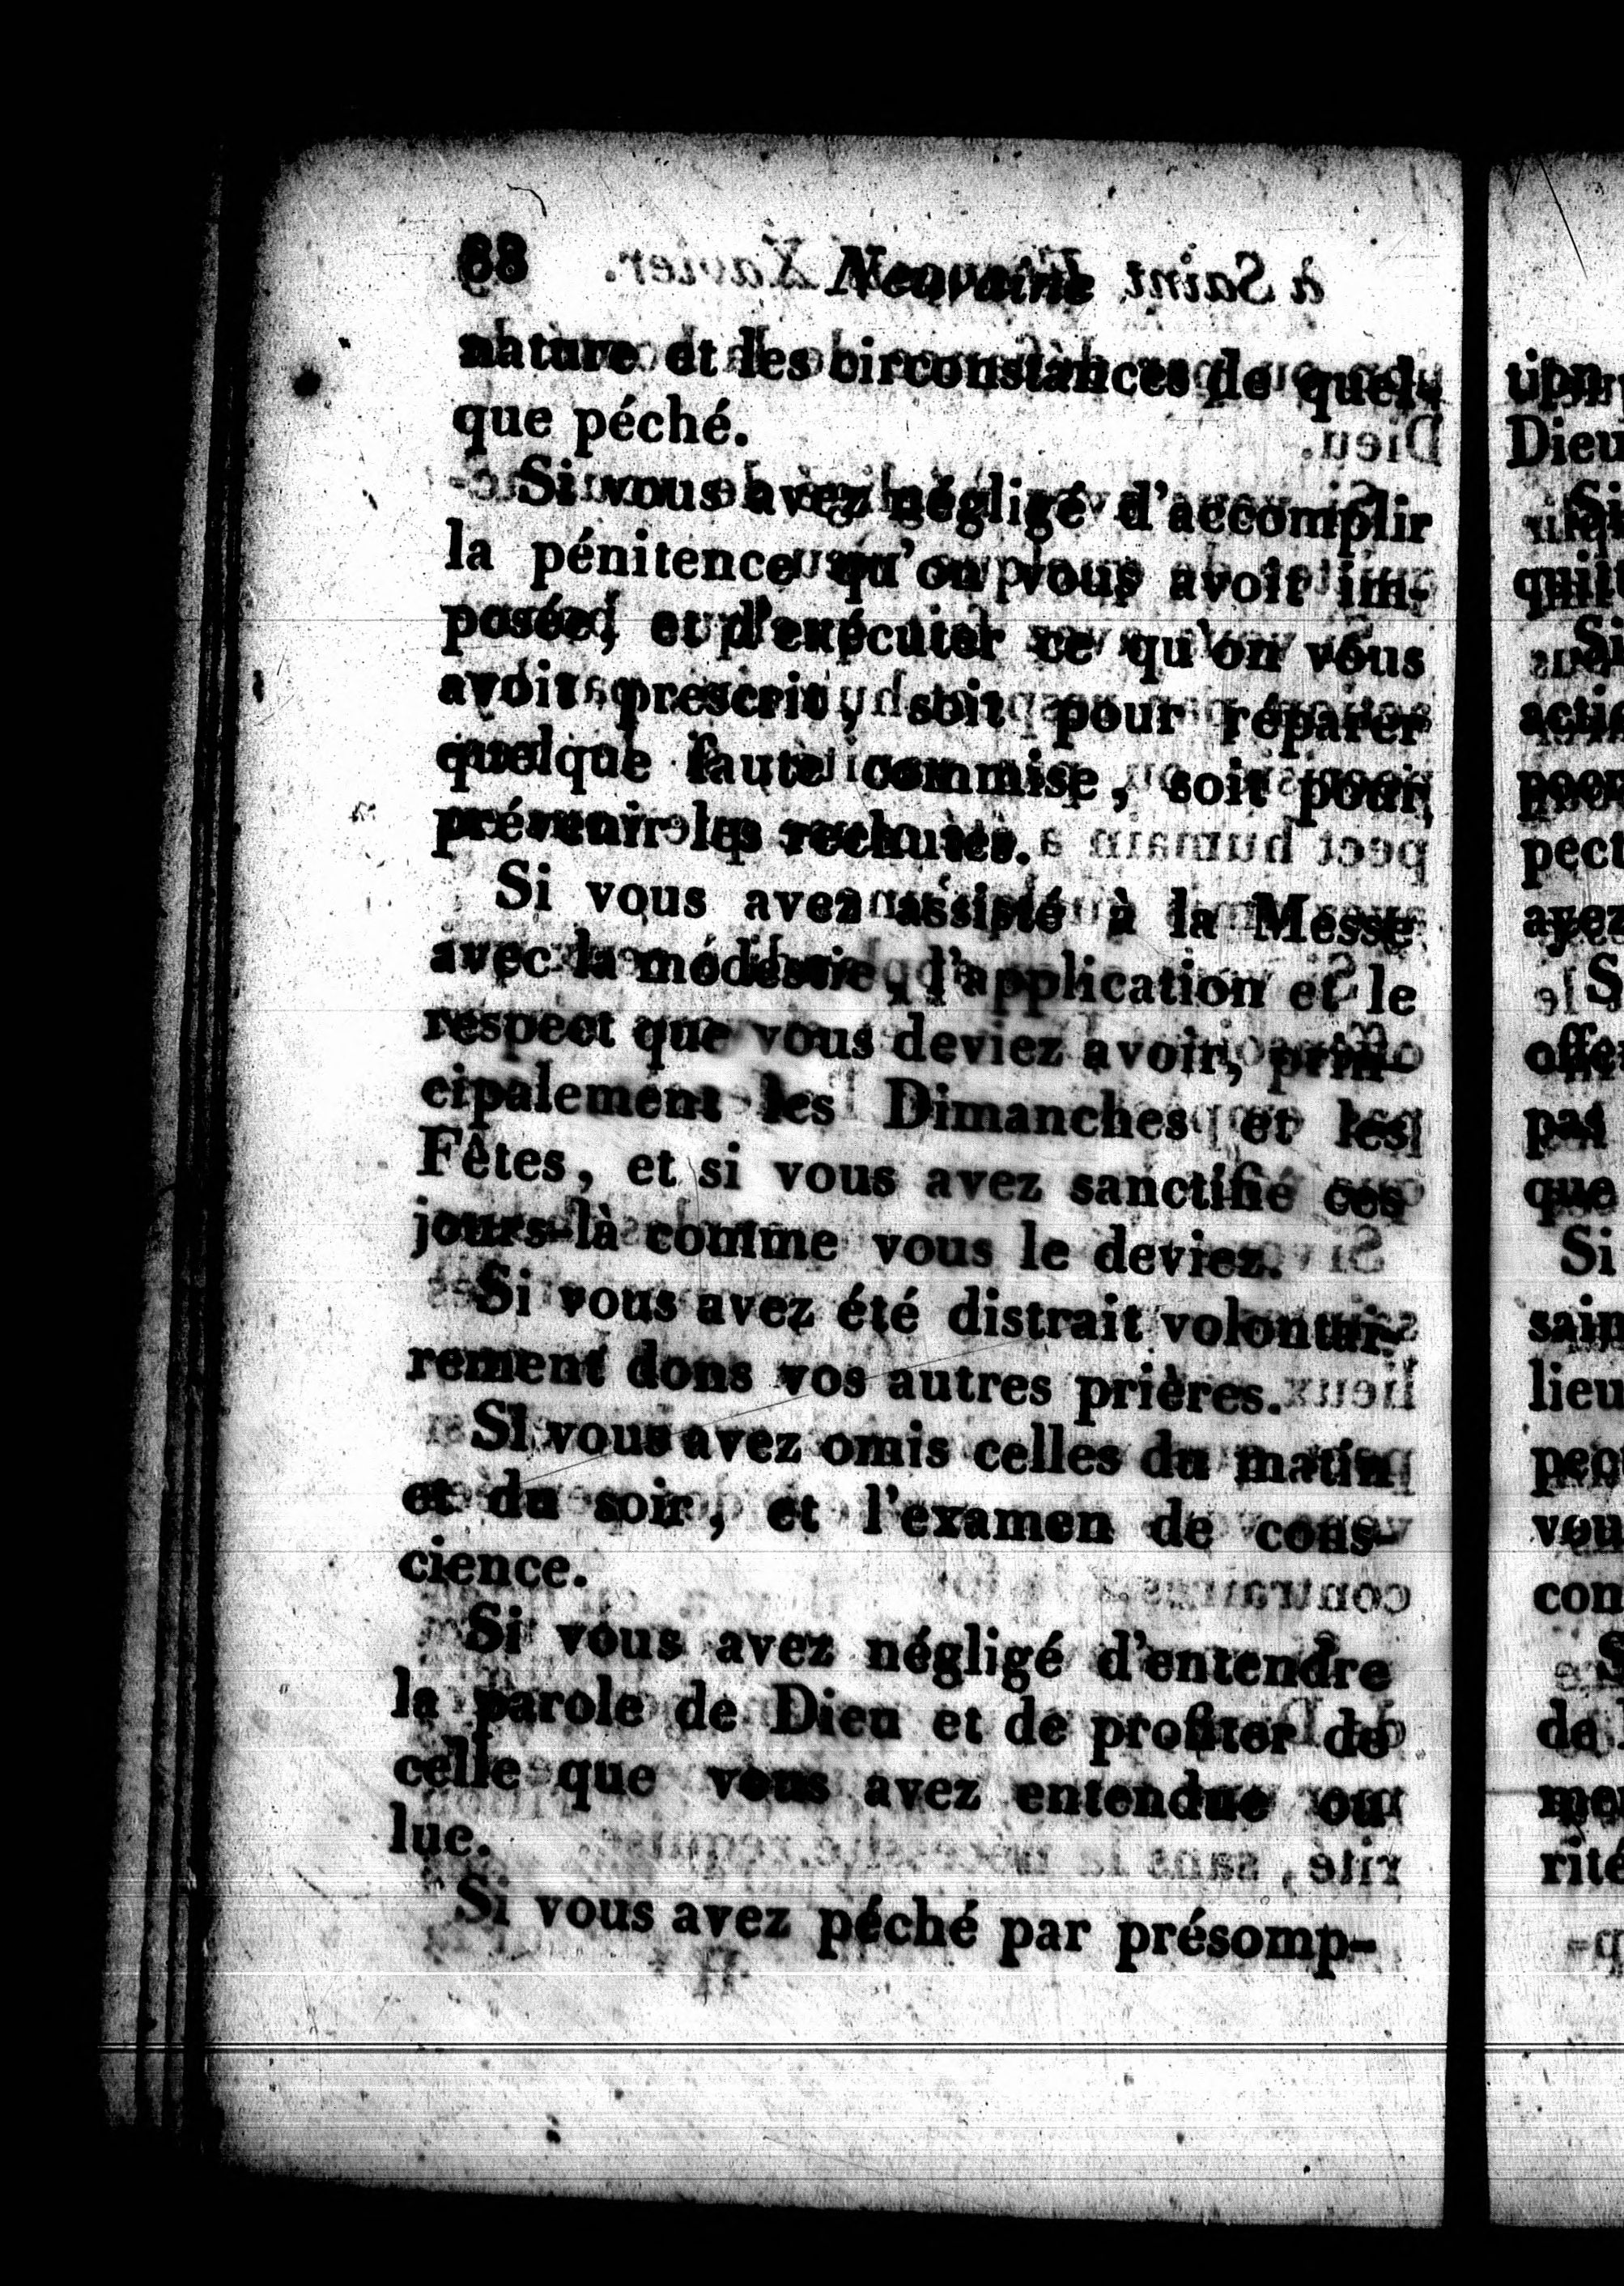 68 Neuvaine
nature et les circonstances de quel-
que péché.
Si vous avez négligé d'accomplir
la pénitence qu'on vous avoit im-
posée, et d'exécuter ce qu'on vous
avoit prescrit, soit pour réparer
quelque faute commise, soit pour
prévenir les rechutes.
Si vous avez assisté à la Messe
avec la modestie, l'application et le
respect que vous deviez avoir, prin-
cipalement les Dimanches et les
Fêtes, et si vous avez sanctifié ces
jours-là comme vous le deviez.
Si vous avez été distrait volontai-
rement dons vos autres prières.
SI vous avez omis celles du matin
et du soir, et l'examen de cons-
cience.
Si vous avez négligé d'entendre
la parole de Dieu et de profiter de
celle que vous avez entendue ou
lue.
Si vous avez péché par présomp-